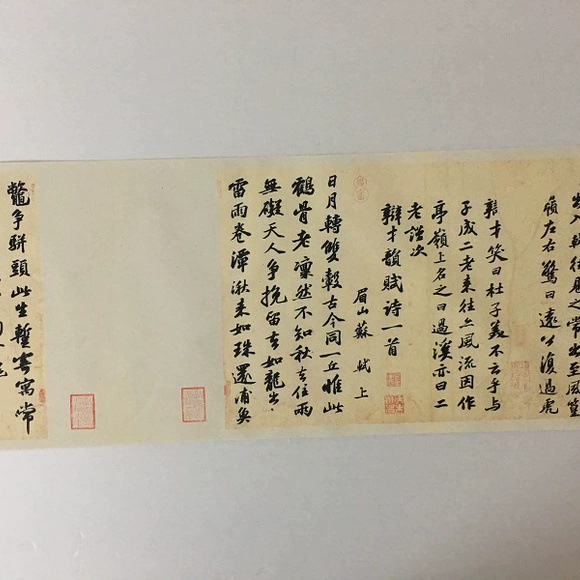 出入軾往見之常出至風篁
嶺左右驚曰遠公復過虎
辯才笑曰杜子美不云乎與
子成二老来往亦風流因作
亭嶺上名之曰過溪亦曰二
老謹次
辯才韻賦詩一首
眉山蘇軾上
日月轉雙轂古今同一丘惟此
鶴骨老凜然不知秋去住兩
無礙天人争挽留去如龍出
雷雨卷潭湫来如珠還浦魚
鼈争駢頭此生暫寄寓常